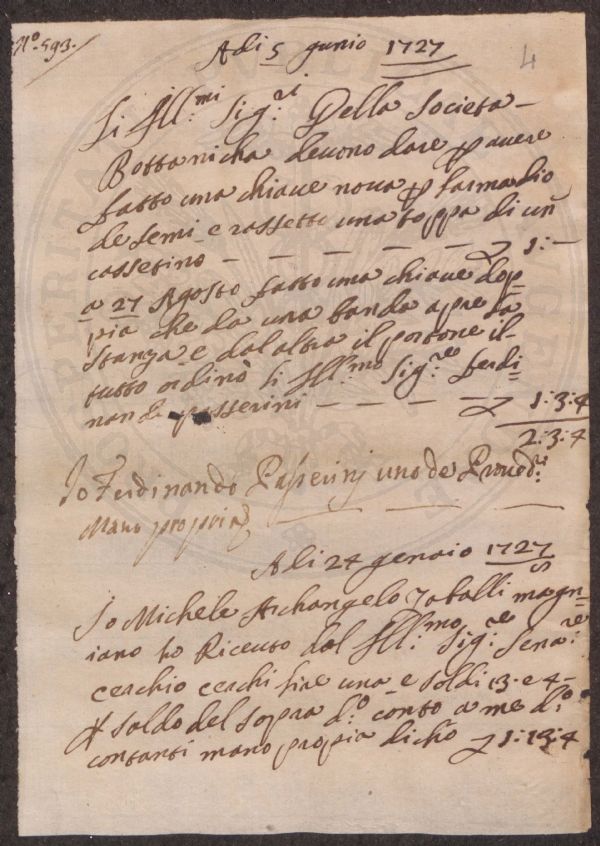 Nº. 593.
4
A di 5 gunio 1727
Li Ill.mi Sig.ri Della Societa
Bottanicha devono dare p avere
fatto una chiave nova p larmadio
de semi e rassetto una toppa di un
cassetino — — — — — 1:—
a 27 Agosto fatto una chiave dop-
pia che da una banda apre la
stanza e dal altra il portone il
tutto ordinò li Ill.mo Sig.re ferdi-
nando passerini — — — — 1:3:4
2:3:4
Io Ferdinando Passerinj uno de Proved.ri
Mano propria
A li 24 genaio 1727
Io Michele Archangelo magn-
iano ho Riceuto dal Ill.mo Sig.re Sena.re
cerchio cerchi lire una e soldi 13 e 4
p saldo del sopra d.o conto a me d.o
contanti mano propia dicho 1:13:4